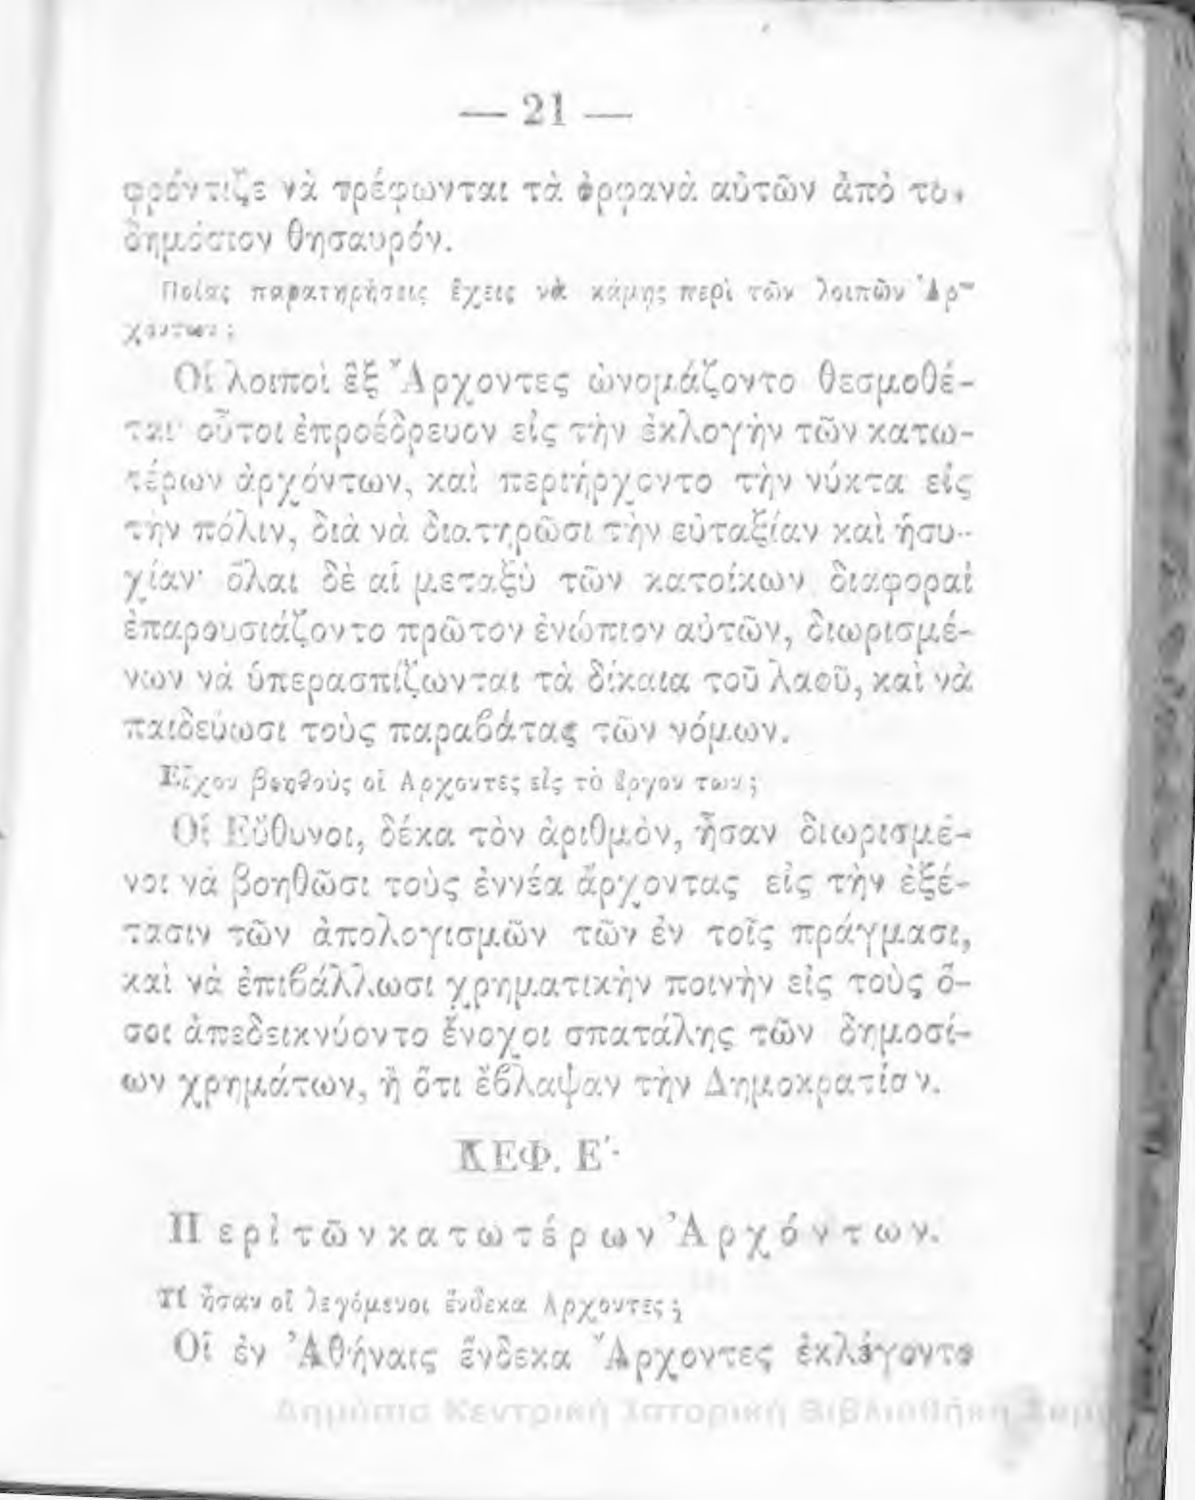 — 21 —
φρόντιζε νὰ τρέφωνται τὰ ὀρφανὰ αὐτῶν ἀπὸ τὸν
δημόσιον θησαυρόν.
Ποίας παρατηρήσεις ἔχεις νὰ κάμῃς περὶ τῶν λοιπῶν Ἀρ-
χόντων;
Οἱ λοιποὶ ἓξ Ἄρχοντες ὠνομάζοντο θεσμοθέ-
ται· οὗτοι ἐπροέδρευον εἰς τὴν ἐκλογὴν τῶν κατω-
τέρων ἀρχόντων, καὶ περιήρχοντο τὴν νύκτα εἰς
τὴν πόλιν, διὰ νὰ διατηρῶσι τὴν εὐταξίαν καὶ ἡσυ-
χίαν· ὅλαι δὲ αἱ μεταξὺ τῶν κατοίκων διαφοραὶ
ἐπαρουσιάζοντο πρῶτον ἐνώπιον αὐτῶν, διωρισμέ-
νων νὰ ὑπερασπίζωνται τὰ δίκαια τοῦ λαοῦ, καὶ νὰ
παιδεύωσι τοὺς παραβάτας τῶν νόμων.
Εἶχον βοηθοὺς οἱ Αρχοντες εἰς τὸ ἔργον των;
Οἱ Εὔθυνοι, δέκα τὸν ἀριθμὸν, ἦσαν διωρισμέ-
νοι νὰ βοηθῶσι τοὺς ἐννέα ἄρχοντας εἰς τὴν ἐξέ-
τασιν τῶν ἀπολογισμῶν τῶν ἐν τοῖς πράγμασι,
καὶ νὰ ἐπιβάλλωσι χρηματικὴν ποινὴν εἰς τοὺς ὅ-
σοι ἀπεδεικνύοντο ἔνοχοι σπατάλης τῶν δημοσί-
ων χρημάτων, ἢ ὅτι ἔβλαψαν τὴν Δημοκρατίαν.
ΚΕΦ. Ε΄.
Περὶ τῶν κατωτέρων Ἀρχόντων.
Τί ἦσαν οἱ λεγόμενοι ἕνδεκα Αρχοντες;
Οἱ ἐν Ἀθήναις ἕνδεκα Ἄρχοντες ἐκλέγοντο
Δημόσια Κεντρική Ιστορική Βιβλιοθήκη